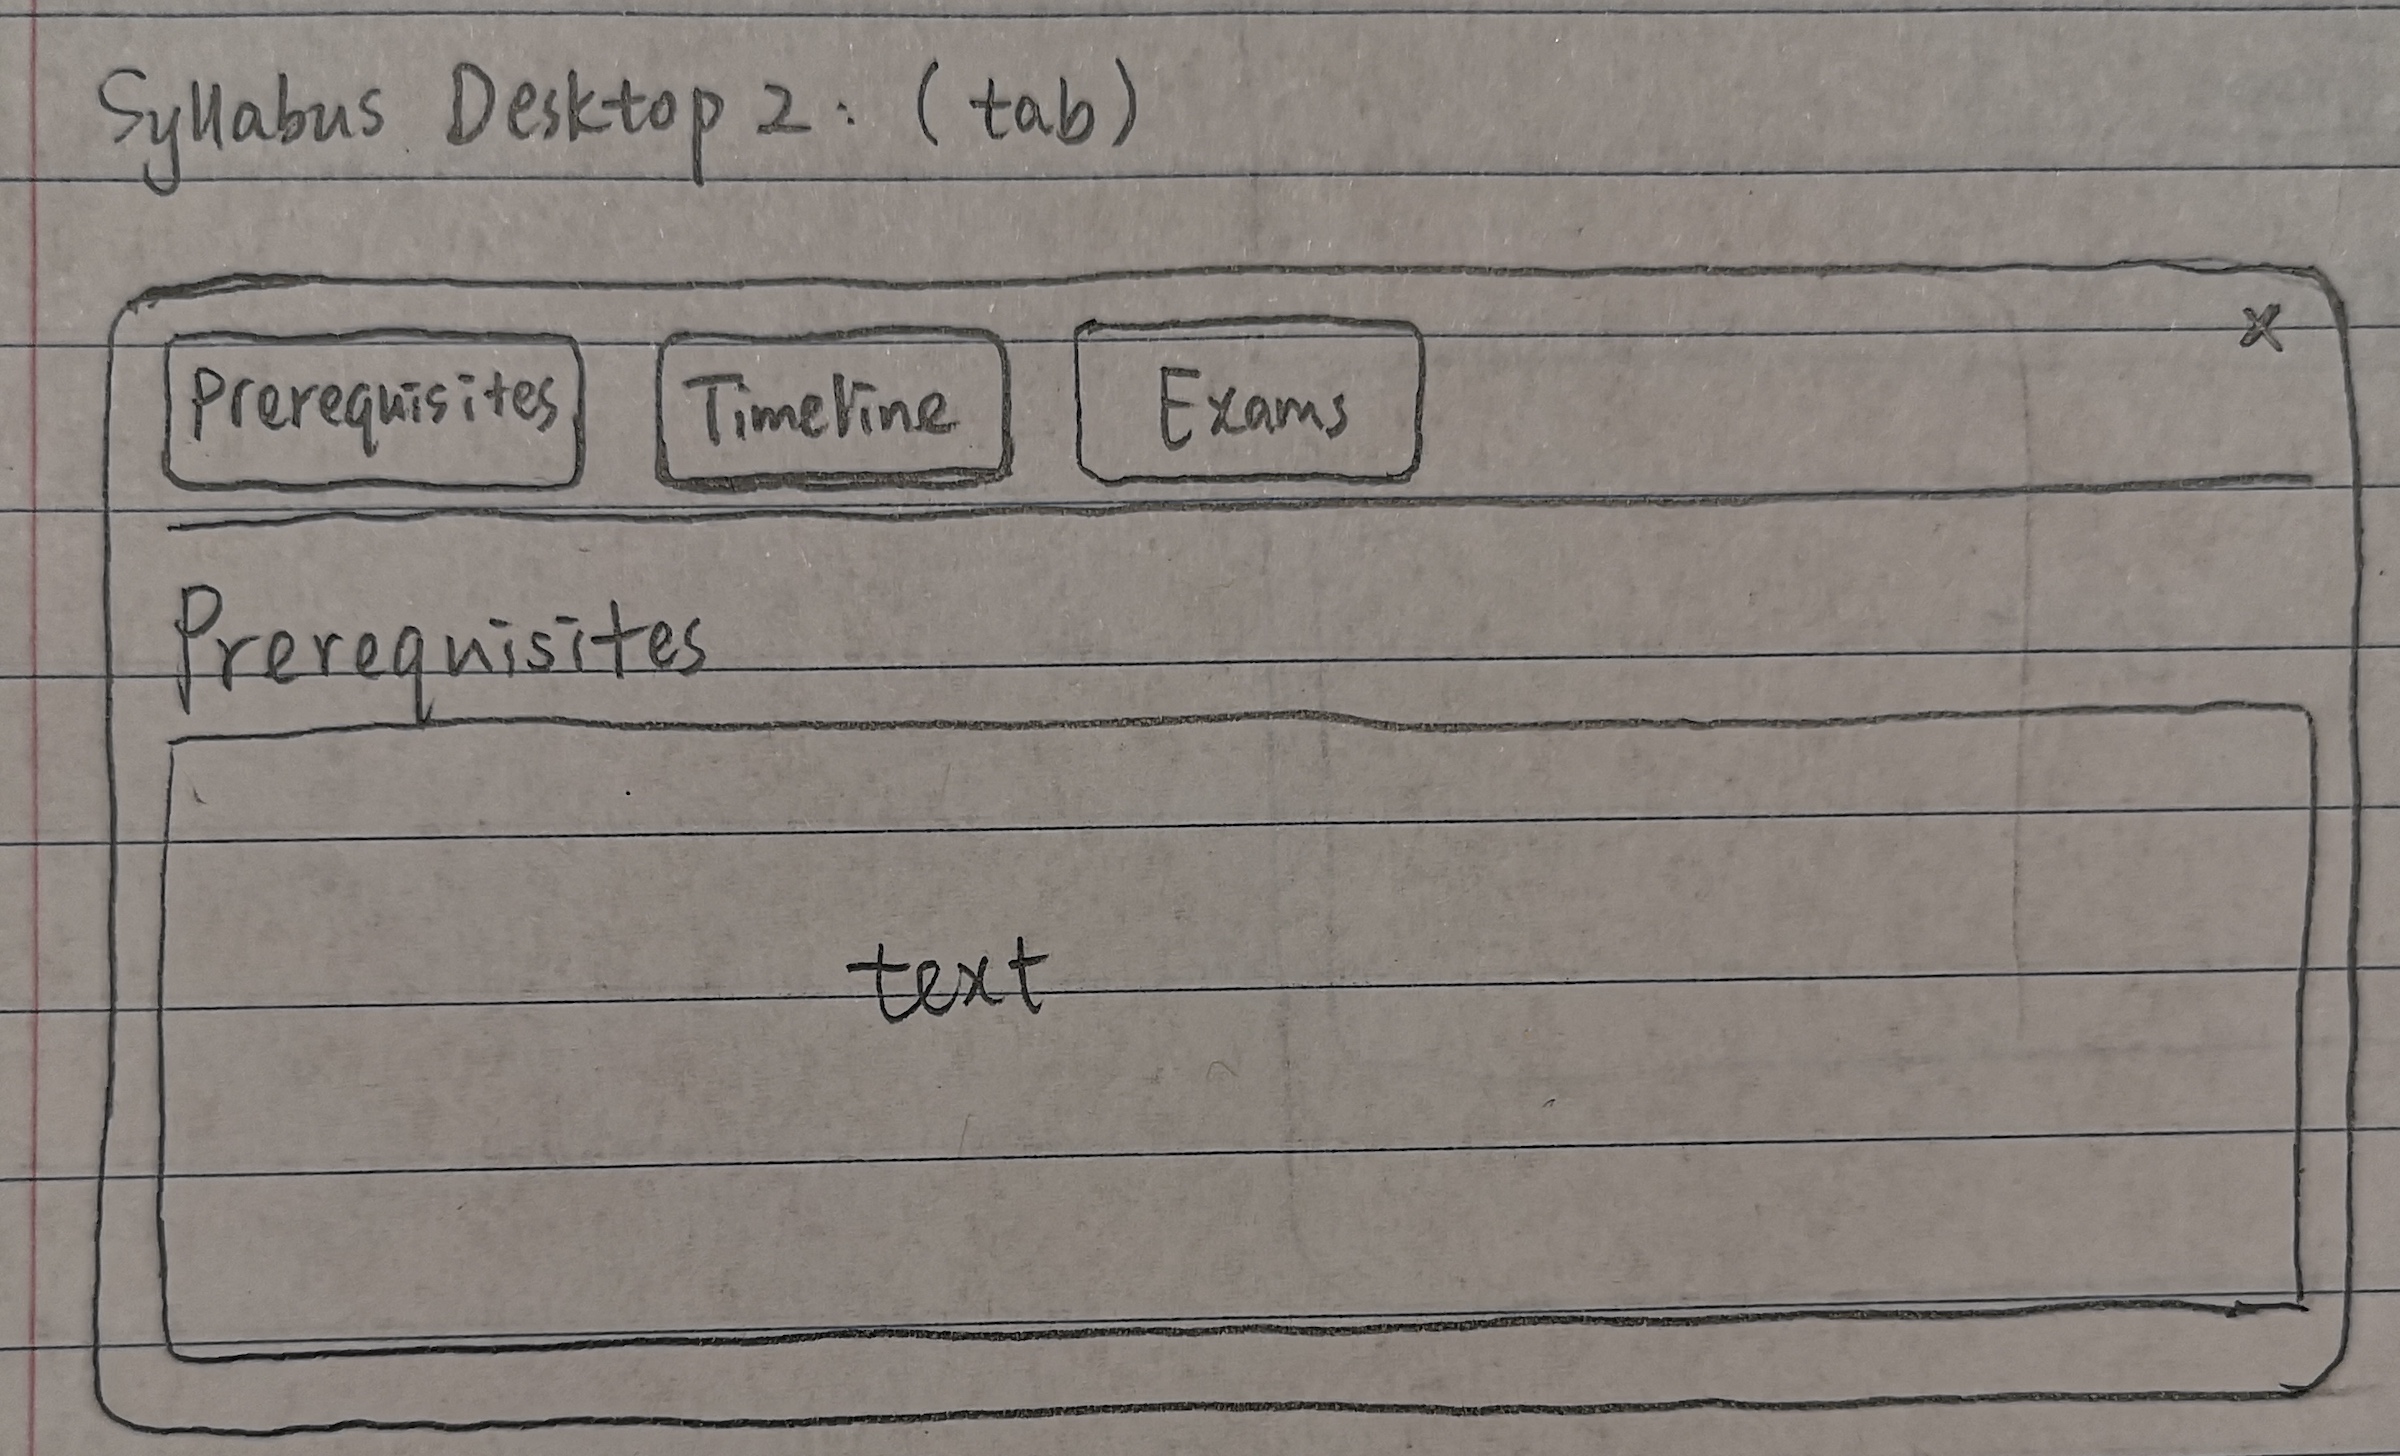 Syllabus Desktop 2: (tab)
Prerequisites Timeline Exams x
Prerequisites
text